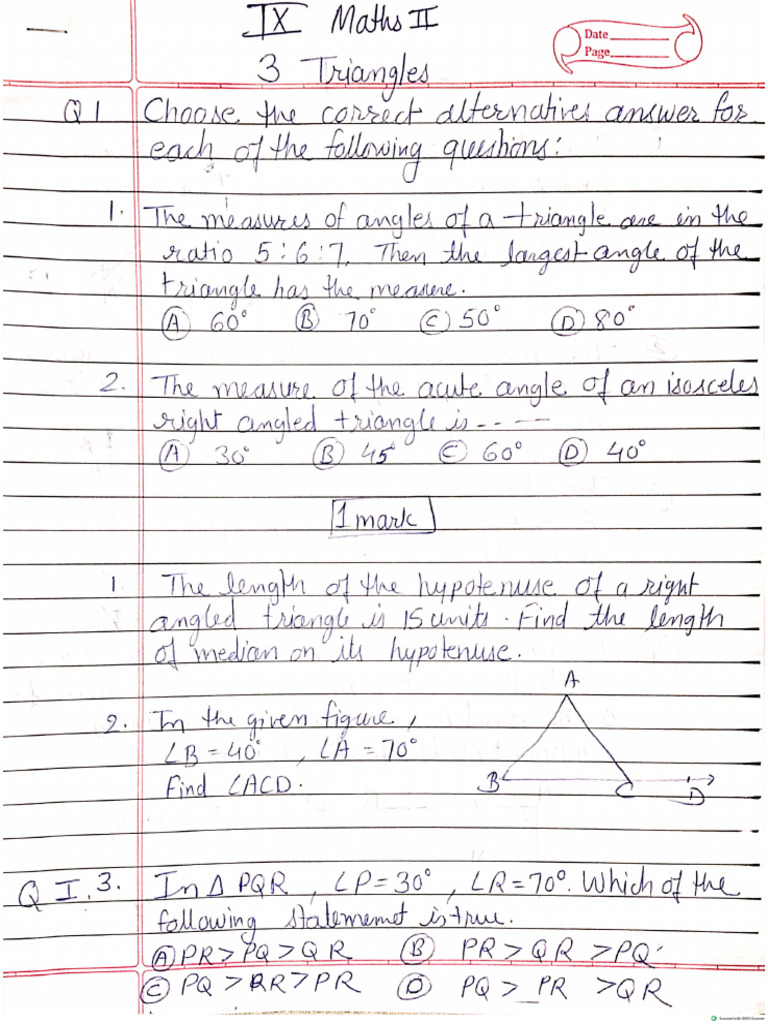 IX Maths II
Date
Page
3 Triangles
Q1 Choose the correct alternatives answer for
each of the following questions:
1. The measures of angles of a triangle are in the
ratio 5:6:7. Then the largest angle of the
triangle has the measure.
(A) 60° (B) 70° (C) 50° (D) 80°
2. The measure of the acute angle of an isosceles
right angled triangle is -----
(A) 30° (B) 45° (C) 60° (D) 40°
1 mark
1. The length of the hypotenuse of a right
angled triangle is 15 units. Find the length
of median on its hypotenuse.
2. In the given figure,
∠B = 40°, ∠A = 70°
Find ∠ACD.
A
B C D
Q I. 3. In Δ PQR, ∠P = 30°, ∠R = 70°. Which of the
following statememt is true.
(A) PR > PQ > QR (B) PR > QR > PQ
(C) PQ > RR > PR (D) PQ > PR > QR
Scanned with